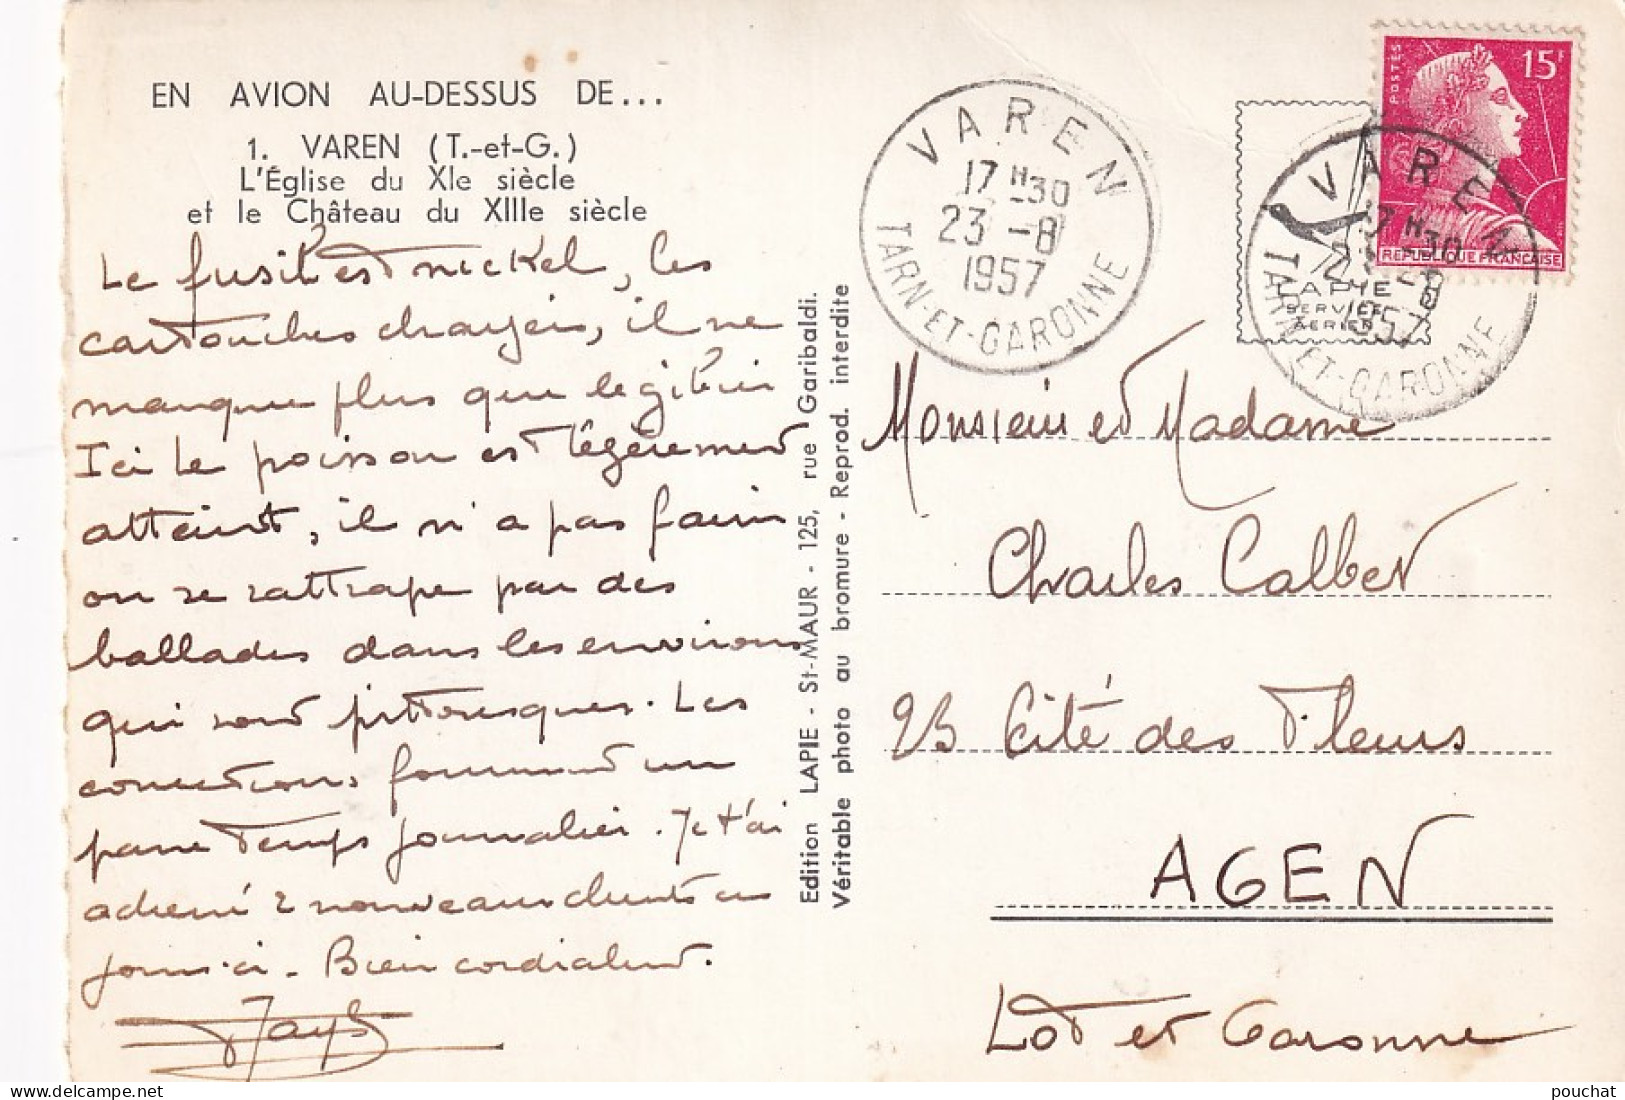 EN AVION AU-DESSUS DE...
1. VAREN (T.-et-G.)
L'Église du XIe siècle
et le Château du XIIIe siècle
Le fusil est nickel, les
cartouches chargées, il ne
manque plus que le gibier
Ici le poisson est légèrement
atteint, il n'a pas faim
on se rattrape par des
ballades dans les environs
qui sont pittoresques. Les
forment un
passe temps journalier. Je t'ai
adressé 2 nouveaux clients ces
jours-ci. Bien cordialement.
Edition LAPIE - St-MAUR - 125, rue Garibaldi.
Véritable photo au bromure - Reprod. interdite
VAREN
17 H 30
23 -8
1957
TARN-ET-GARONNE
POSTES
15F
REPUBLIQUE FRANÇAISE
VAREN
17 H 30
1957
TARN-ET-GARONNE
LAPIE
SERVICE
AERIEN
Monsieur et Madame
Charles Calbet
93 Cité des Fleurs
AGEN
Lot et Garonne
pouchat